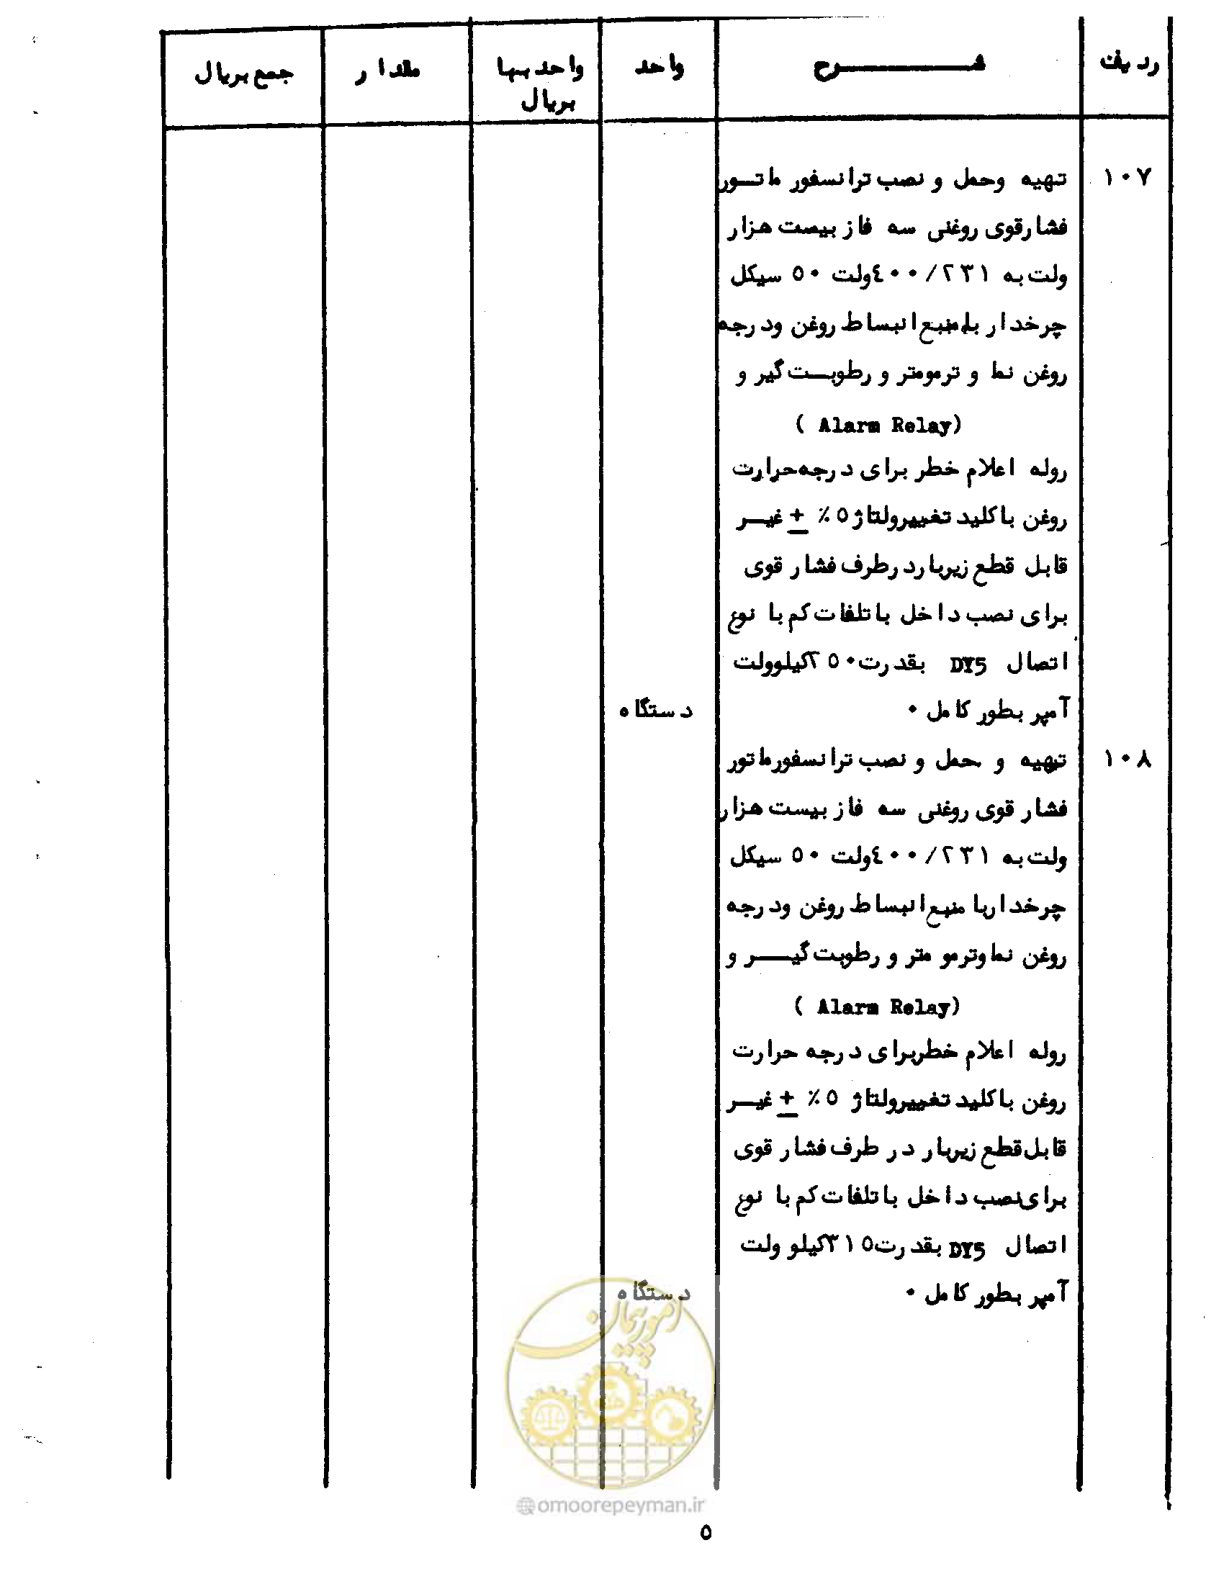 ردیف شـــــرح واحد واحد بها مقدار جمع بریال
بریال
۱۰۷ تهیه وحمل و نصب ترانسفورماتـور
فشارقوی روغنی سه فاز بیست هزار
ولت به ۴۰۰/۲۳۱ ولت ۵۰ سیکل
چرخدار با منبع انبساط روغن ودرجه
روغن نما و ترمومتر و رطوبـت گیر و
( Alarm Relay)
روله اعلام خطر برای درجه حرارت
روغن با کلید تغییرولتاژ ۵٪ ± غیـر
قابل قطع زیربار در طرف فشار قوی
برای نصب داخل با تلفات کم با نوع
اتصال DY5 بقدرت ۲۵۰ کیلوولت
آمپر بطور کامل ۰ دستگاه
۱۰۸ تهیه و حمل و نصب ترانسفورماتور
فشار قوی روغنی سه فاز بیست هزار
ولت به ۴۰۰/۲۳۱ ولت ۵۰ سیکل
چرخدار با منبع انبساط روغن ودرجه
روغن نما وترمو متر و رطوبت گیـــر و
( Alarm Relay)
روله اعلام خطر برای درجه حرارت
روغن با کلید تغییرولتاژ ۵٪ ± غیـر
قابل قطع زیربار در طرف فشار قوی
برای نصب داخل با تلفات کم با نوع
اتصال DY5 بقدرت ۳۱۵ کیلو ولت
آمپر بطور کامل ۰ دستگاه
امور پیمان
@omoorepeyman.ir
۵